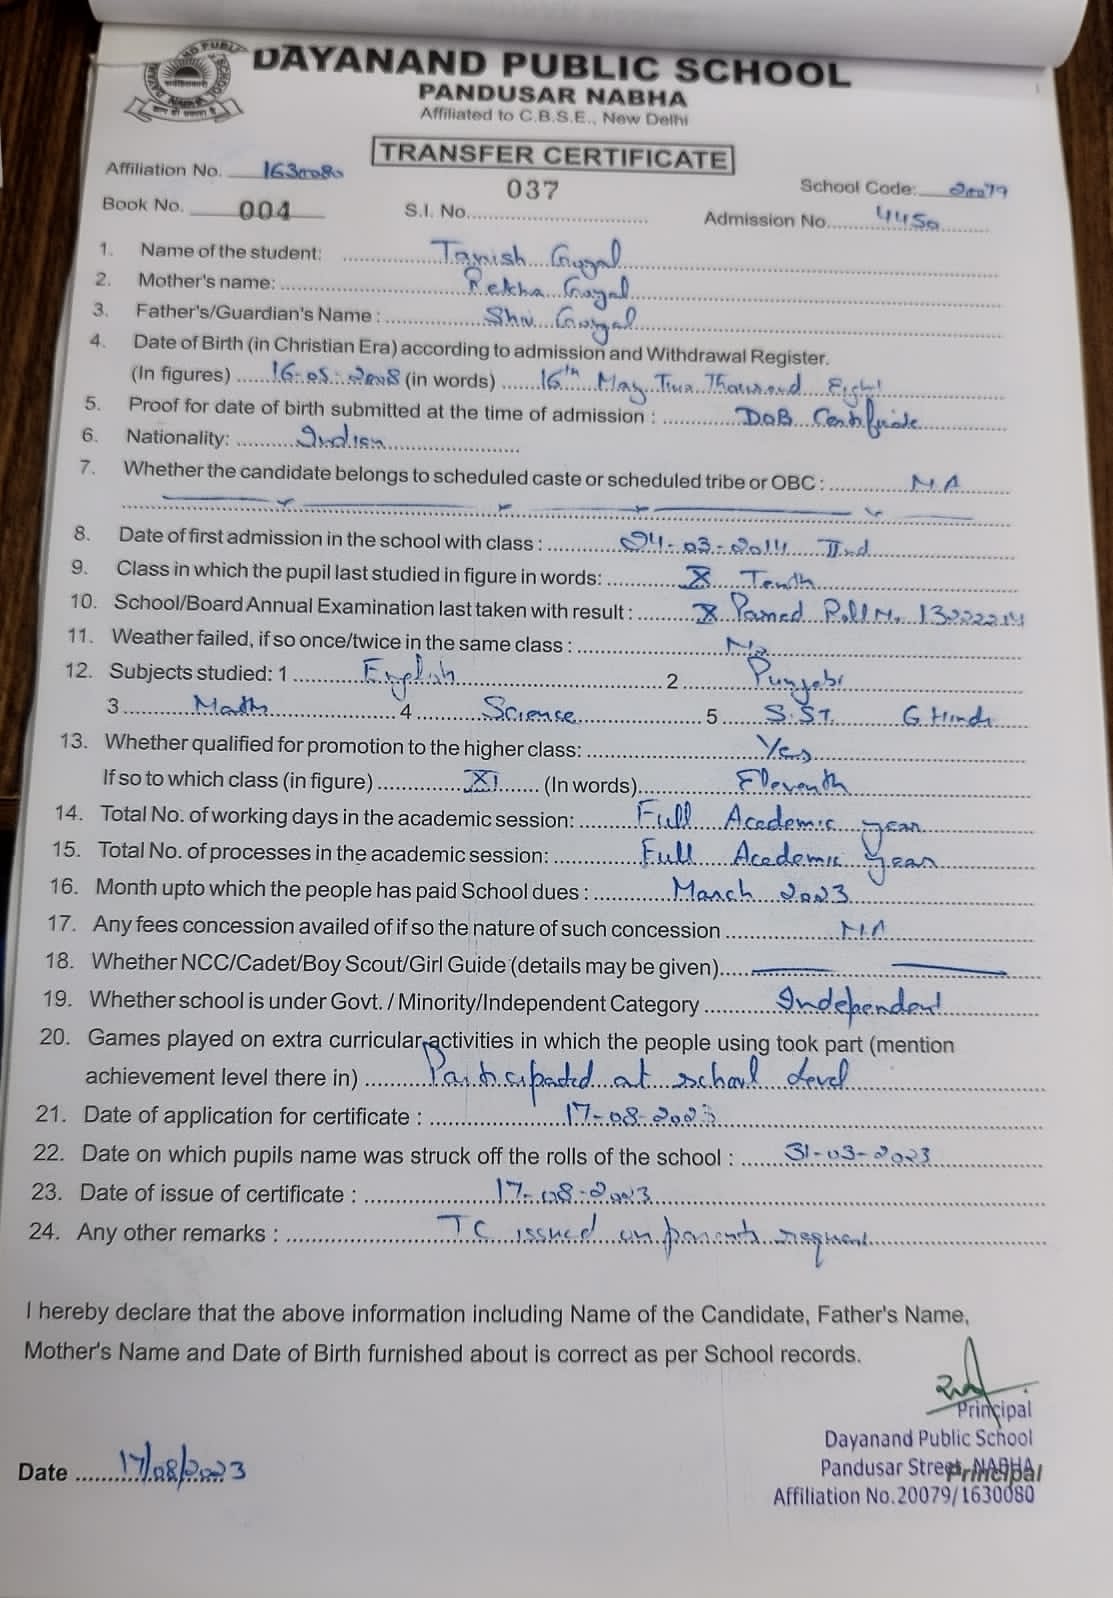 DAYANAND PUBLIC SCHOOL
PANDUSAR NABHA
Affiliated to C.B.S.E., New Delhi
TRANSFER CERTIFICATE
Affiliation No. 1630080
037
School Code: 20079
Book No. 004
S.I. No.
Admission No. 4450
1. Name of the student: Tanish Goyal
2. Mother's name: Rekha Goyal
3. Father's/Guardian's Name : Shiv Goyal
4. Date of Birth (in Christian Era) according to admission and Withdrawal Register.
(In figures) 16-05-2008 (in words) 16th May Two Thousand Eight
5. Proof for date of birth submitted at the time of admission : DOB Certificate
6. Nationality: Indian
7. Whether the candidate belongs to scheduled caste or scheduled tribe or OBC : N.A
8. Date of first admission in the school with class : 04-03-2014 IInd
9. Class in which the pupil last studied in figure in words: X Tenth
10. School/Board Annual Examination last taken with result : X Passed Roll No. 13222214
11. Weather failed, if so once/twice in the same class : No
12. Subjects studied: 1 English 2 Punjabi
3 Math 4 Science 5 S.ST. 6 Hindi
13. Whether qualified for promotion to the higher class: Yes
If so to which class (in figure) XI (In words) Eleventh
14. Total No. of working days in the academic session: Full Academic year
15. Total No. of processes in the academic session: Full Academic year
16. Month upto which the people has paid School dues : March 2023
17. Any fees concession availed of if so the nature of such concession N.A
18. Whether NCC/Cadet/Boy Scout/Girl Guide (details may be given)
19. Whether school is under Govt. / Minority/Independent Category Independent
20. Games played on extra curricular activities in which the people using took part (mention
achievement level there in) Participated at school level
21. Date of application for certificate : 17-08-2023
22. Date on which pupils name was struck off the rolls of the school : 31-03-2023
23. Date of issue of certificate : 17-08-2023
24. Any other remarks : TC issued on parents request
I hereby declare that the above information including Name of the Candidate, Father's Name,
Mother's Name and Date of Birth furnished about is correct as per School records.
Principal
Dayanand Public School
Pandusar Street, NABHA
Principal
Affiliation No.20079/1630080
Date 17/08/2023